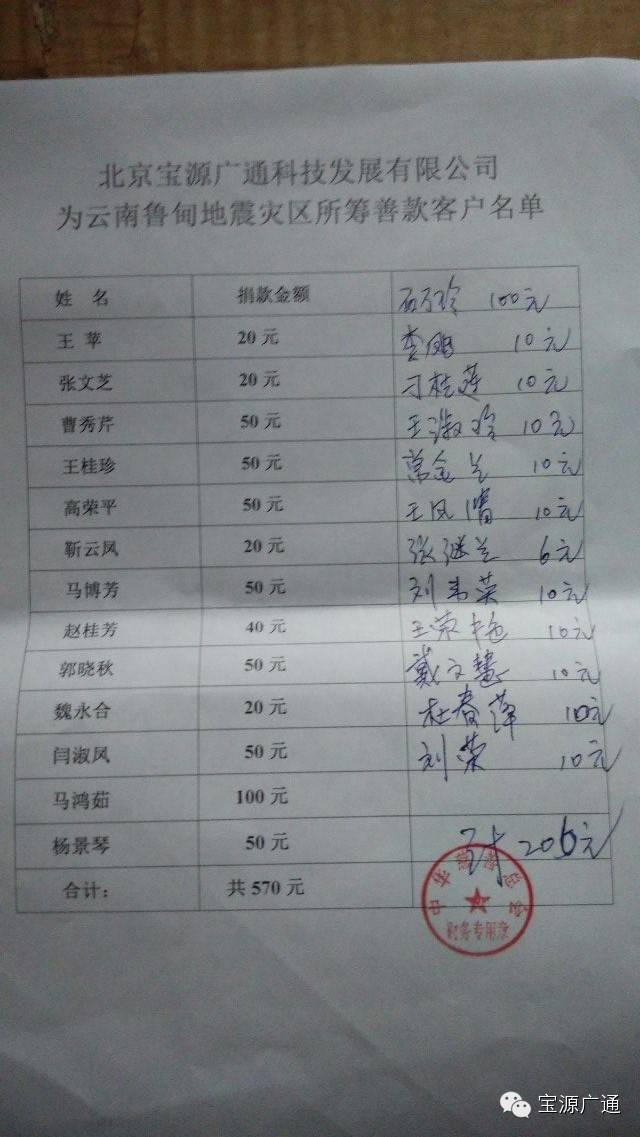 北京宝源广通科技发展有限公司
为云南鲁甸地震灾区所筹善款客户名单
姓 名 捐款金额 100元
王 苹 20 元 李鹏 10元
张文芝 20 元 刁桂莲 10元
曹秀芹 50 元 王淑玲 10元
王桂珍 50 元 常金兰 10元
高荣平 50 元 王凤清 10元
靳云凤 20 元 张继兰 6元
马博芳 50 元 刘 荣 10元
赵桂芳 40 元 王荣艳 10元
郭晓秋 50 元 戴文慧 10元
魏永合 20 元 杜春萍 10元
闫淑凤 50 元 刘荣 10元
马鸿茹 100 元
杨景琴 50 元 206元
合计： 共 570 元
中华慈善总会
财务专用章
宝源广通